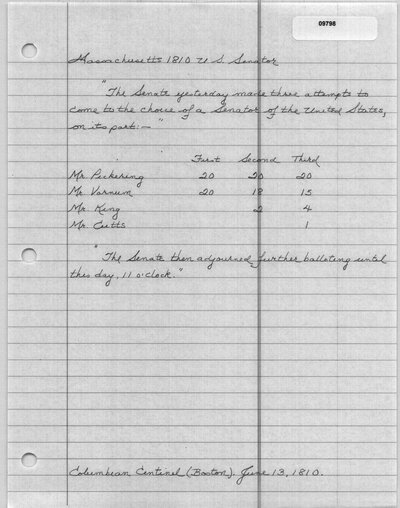 09798
Massachusetts 1810 U.S. Senator
"The Senate yesterday made three attempts to
come to the choice of a Senator of the United States,
on its part:—"
First Second Third
Mr. Pickering 20 20 20
Mr. Varnum 20 18 15
Mr. King 2 4
Mr. Cutts 1
"The Senate then adjourned further balloting until
this day, 11 o'clock."
Columbian Centinel (Boston). June 13, 1810.